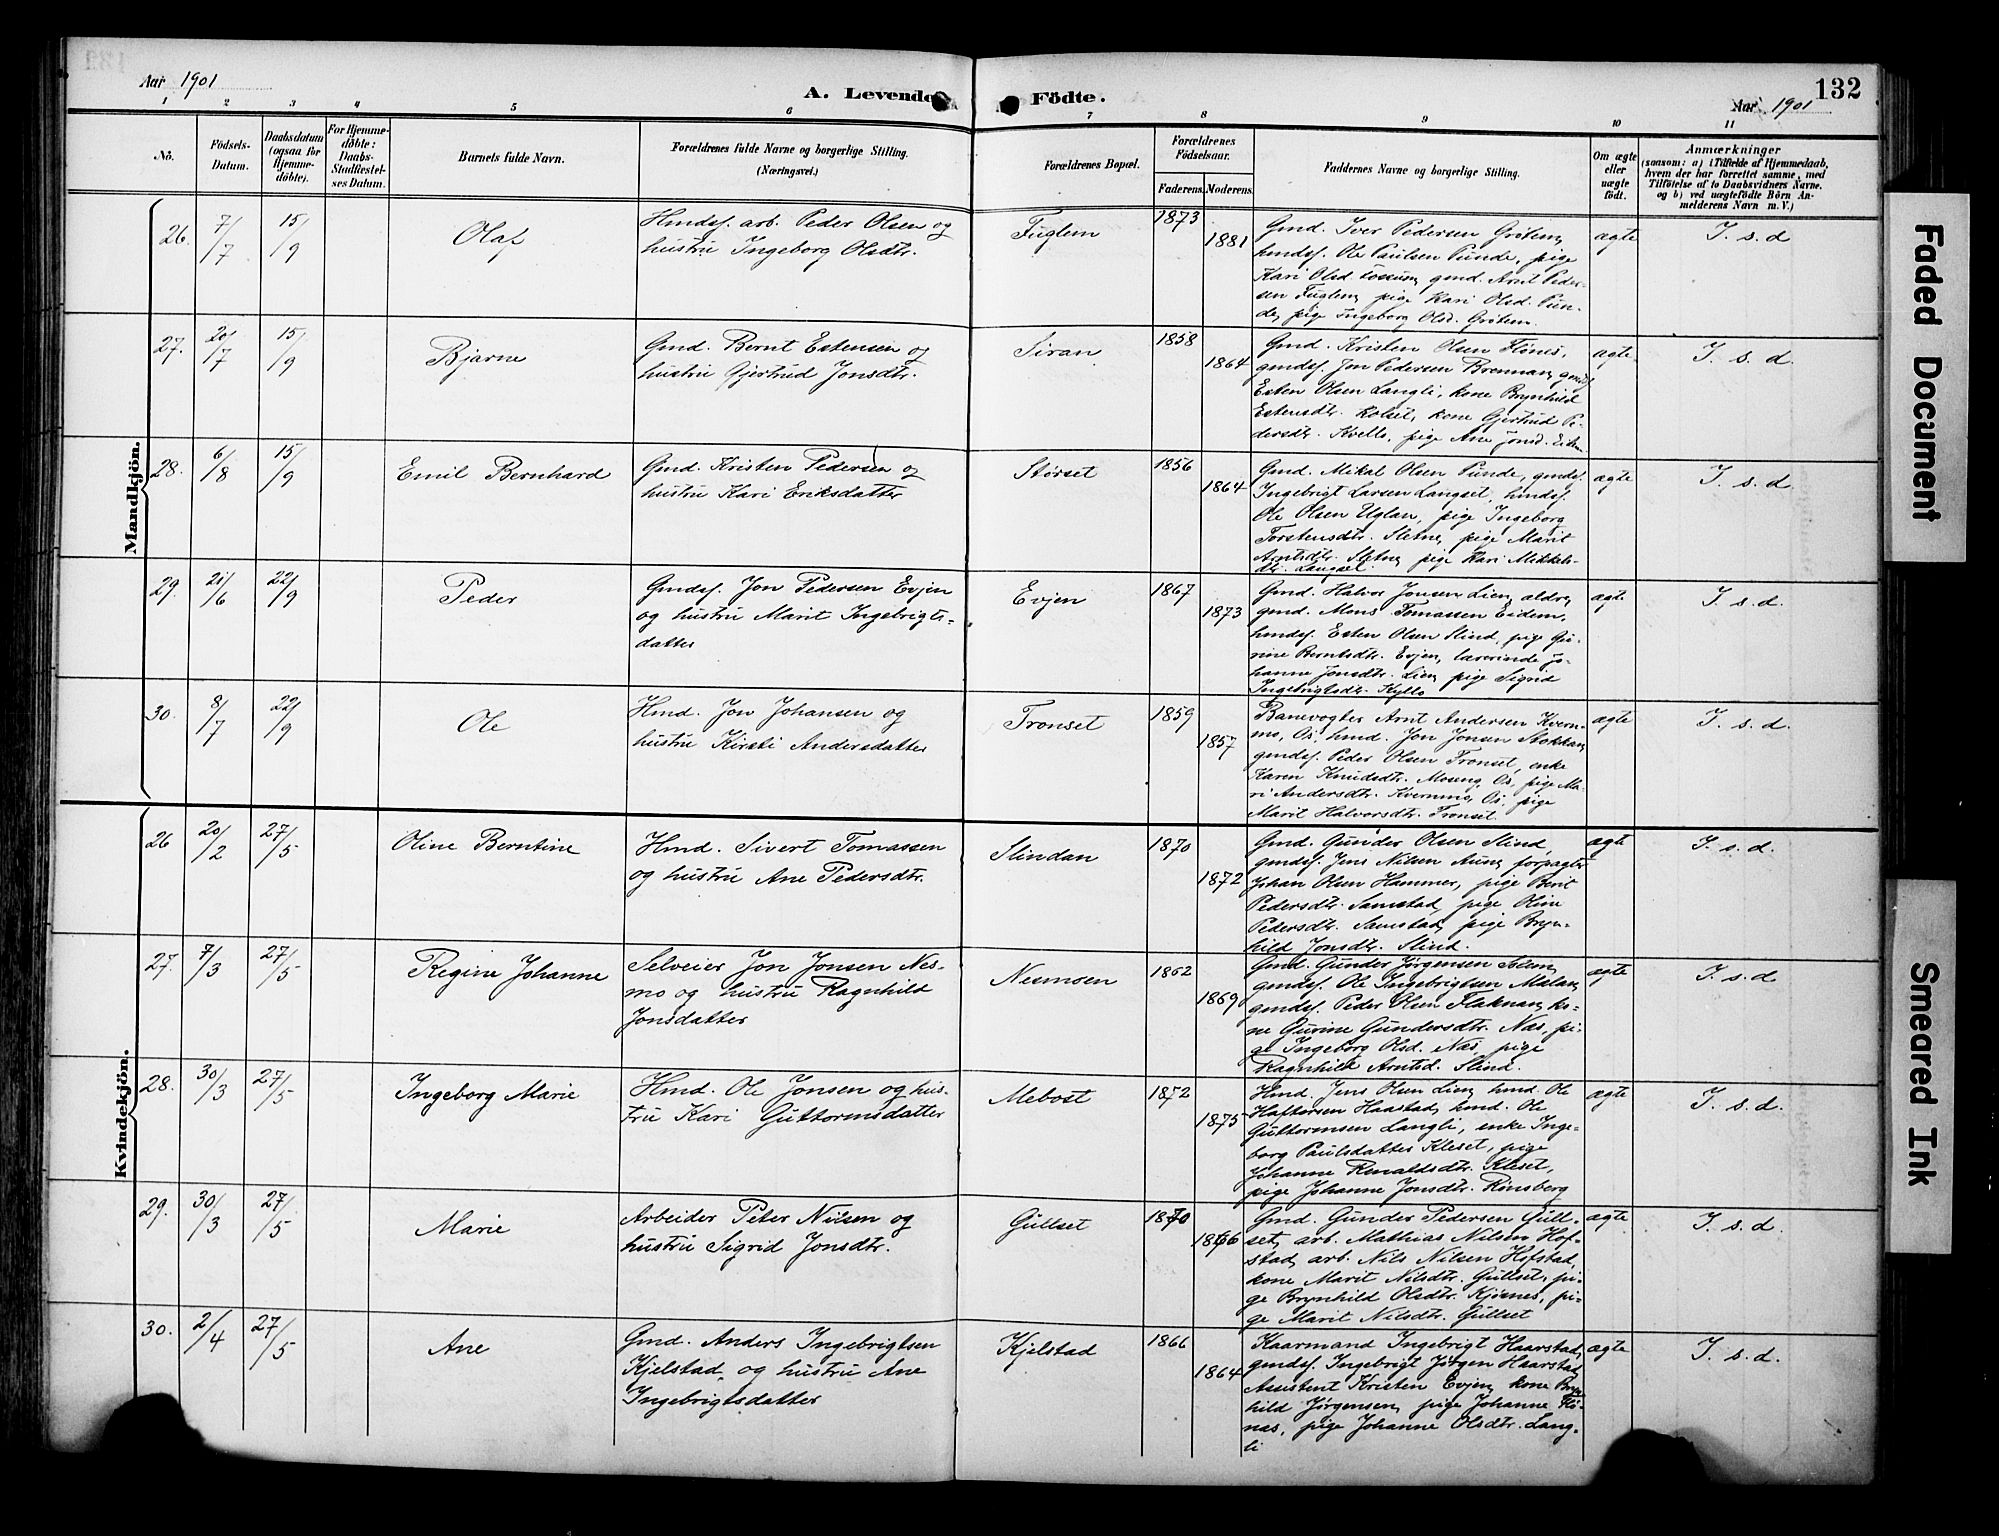 Aar 1901
A. Levende Födte.
Aar 1901
132
1 2 3 4 5 6 7 8 9 10 11
No.
Födsels-
Datum.
Daabsdatum
(ogsaa for
Hjemme-
döbte).
For Hjemme-
döbte:
Daabs-
Stadfæstel-
ses Datum.
Barnets fulde Navn.
Forældrenes fulde Navne og borgerlige Stilling.
(Næringsvei.)
Forældrenes Bopæl.
Forældrenes
Födselsaar.
Faderens. Moderens.
Faddernes Navne og borgerlige Stilling.
Om ægte
eller
uægte
födt.
Anmærkninger
(saasom: a) i Tilfælde af Hjemmedaab,
hvem der har forrettet samme, med
Tilföielse af to Daabsvidners Navne,
og b) ved uægtefödte Börn An-
melderens Navn m. V.)
Mandkjön.
26. 7/7 15/9 Olaf
Hmdsf. arb. Peder Olsen og
hustru Ingeborg Olsdtr.
Fuglem 1873 1881
Gmd. Iver Pedersen Grøtem,
hmdsf. Ole Paulsen Punde, pige
Kari Olsd. Fossum, gmd. Arnt Peder-
sen Fuglem, pige Kari Olsd. Pun-
de, pige Ingeborg Olsd. Grøtem.
ægte I. s. d
27. 20/7 15/9 Bjarne
Gmd. Bernt Estensen og
hustru Gjertrud Jonsdtr.
Siran 1858 1864
Gmd. Kristen Olsen Flønes,
gmdsf. Jon Pedersen Brennan, gmdsf.
Esten Olsen Langli, kone Brynhild
Estensdtr. Kolset, kone Gjertrud Pe-
dersdtr. Kvello, pige Ane Jonsd. Eiden
ægte I. s. d.
28. 6/8 15/9 Emil Bernhard
Gmd. Kristen Pedersen og
hustru Kari Eriksdatter
Størset 1856 1864
Gmd. Mikal Olsen Punde, gmdsf.
Ingebrigt Larsen Langset, hmdsf.
Ole Olsen Uglan, pige Ingeborg
Torstensdtr. Sletne, pige Marit
Arntsdtr. Sletne, pige Kari Mikkels-
dtr. Langset.
ægte I. s. d.
29. 21/6 22/9 Peder
Gmdsf. Jon Pedersen Evjen
og hustru Marit Ingebrigts-
datter
Evjen 1867 1873
Gmd. Halvor Jonsen Lien, aldre,
gmd. Mons Tomassen Eidem,
hmdsf. Esten Olsen Slind, pige Gu-
rine Berntsdtr. Evjen, lærerinde Jo-
hanne Jonsdtr. Lien, pige Sigrid
Ingebrigtsdtr. Kyllo
ægte I. s. d.
30. 8/7 22/9 Ole
Hmd. Jon Johansen og
hustru Kirsti Andersdatter
Tronset 1859 1857
Banevogter Arnt Andersen Kvern-
mo, Os, hmd. Jon Jonsen Stokkan,
gmdsf. Peder Olsen Tronset, enke
Karen Knudsdtr. Moseng, Os, pige Ma-
ri Andersdtr. Kvernmo, Os, pige
Marit Halvorsdtr. Tronset
ægte I. s. d.
Kvindekjön.
26 20/2 27/5 Oline Berntine
Hmd. Sivert Tomassen
og hustru Ane Pedersdtr.
Slindan 1870 1872
Gmd. Gunder Olsen Slind,
gmdsf. Jens Nilsen Aune, forpagter
Johan Olsen Hammer, pige Berit
Pedersdtr. Samstad, pige Oline
Pedersdtr. Samstad, pige Bryn-
hild Jonsdtr. Slind.
ægte I. s. d.
27. 7/3 27/5 Regine Johanne
Selveier Jon Jonsen Nes-
mo og hustru Ragnhild
Jonsdatter
Nesmoen 1862 1869
Gmd. Gunder Jørgensen Solem,
gmdsf. Ole Ingebrigtsen Mølan,
gmdsf. Peder Olsen Flaknan, ko-
ne Gurine Gundersdtr. Næs, pi-
ge Ingeborg Olsd. Næs, pige
Ragnhild Arntsd. Slind.
ægte I. s. d.
28. 30/3 27/5 Ingeborg Marie
Hmd. Ole Jonsen og hus-
tru Kari Guttormsdatter
Mebost 1872 1875
Hmd. Jens Olsen Lien, hmd. Ole
Haftorsen Haastad, hmd. Ole
Guttormsen Langli, enke Inge-
borg Paulsdatter Kleset, pige
Johanne Renaldsdtr. Kleset,
pige Johanne Jonsdtr. Rønsberg
ægte I. s. d.
29. 30/3 27/5 Marie
Arbeider Peter Nilsen og
hustru Sigrid Jonsdtr.
Gullset 1870 1866
Gmd. Gunder Pedersen Gull-
set, arb. Mathias Nilsen Hof-
stad, arb. Nils Nilsen Hofstad,
kone Marit Nilsdtr. Gullset, pi-
ge Brynhild Olsdtr. Kjøsnes, pi-
ge Marit Nilsdtr. Gullset
ægte I. s. d.
30. 2/4 27/5 Ane
Gmd. Anders Ingebrigtsen
Kjelstad, og hustru Ane
Ingebrigtsdatter
Kjelstad 1866 1864
Kaarmand Ingebrigt Haarstad,
gmdsf. Ingebrigt Jørgen Haarstad,
Assistent Kristen Evjen, kone Bryn-
hild Jørgensen, pige Johanne Flø-
nas, pige Johanne Olsdtr. Lang-
li
ægte I. s. d.
Faded Document
Smeared Ink